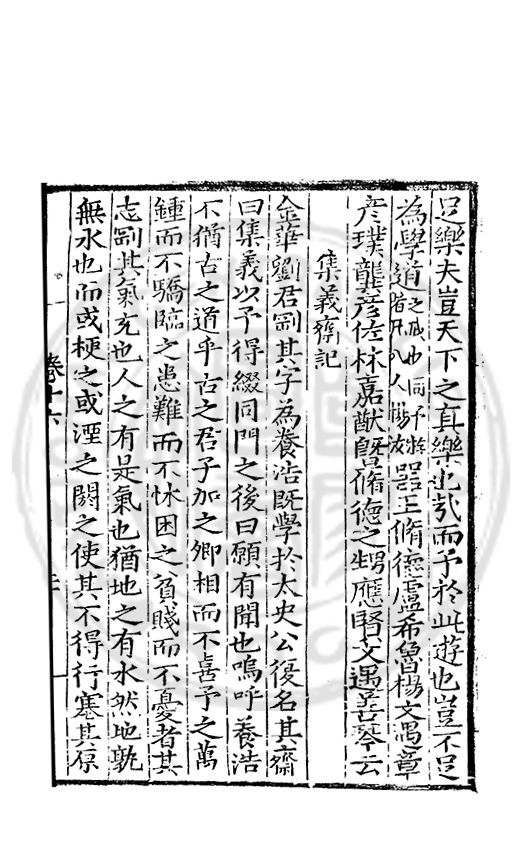 足樂夫豈天下之真樂也㢤而予於此遊也豈不足
為學道之戒也同予遊者凡八人楊友器王脩德盧希魯楊文遇章
彥璞龔彥佐林嘉猷曁脩德之甥應賢文遇善琴云
集義齋記
金華劉君剛其字為養浩既學於太史公復名其齋
曰集義以予得綴同門之後曰願有聞也嗚呼養浩
不猶古之道乎古之君子加之卿相而不喜予之萬
鍾而不驕臨之患難而不怵困之貧賤而不憂者其
志剛其氣充也人之有是氣也猶地之有水然地孰
無水也而或梗之或湮之閼之使其不得行塞其原
卷十六